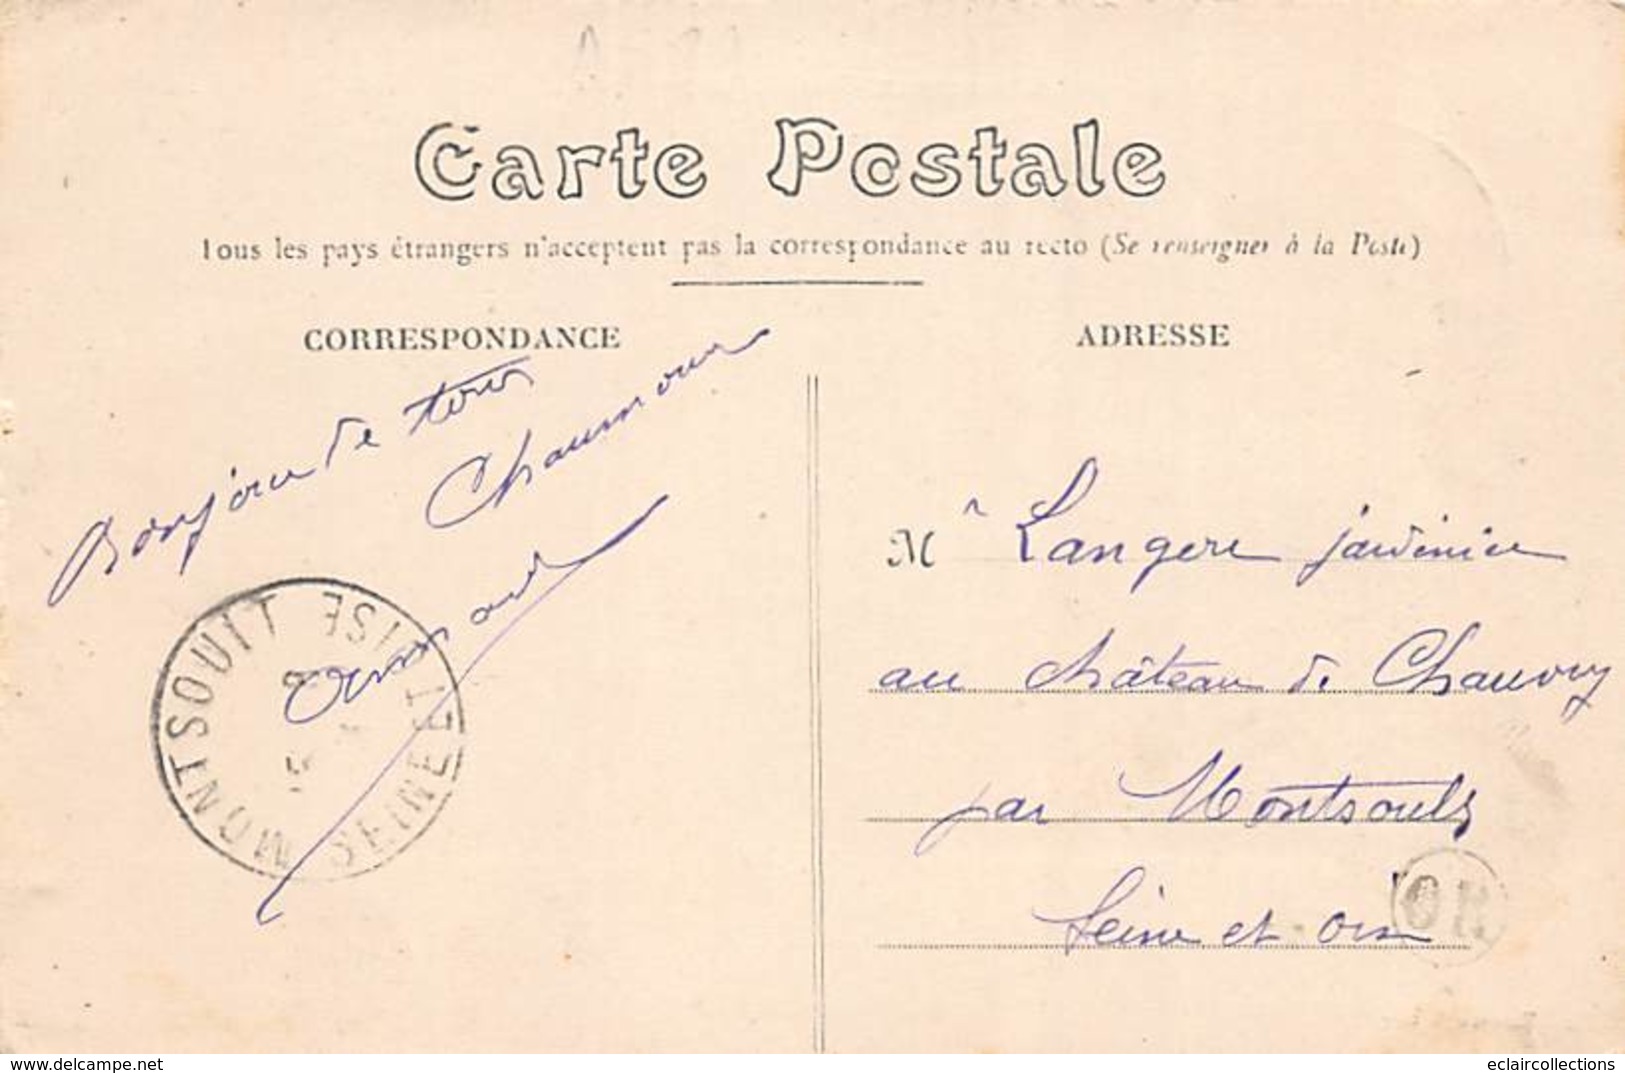 Carte Postale
Tous les pays étrangers n'acceptent pas la correspondance au recto (Se renseigner à la Poste)
CORRESPONDANCE
ADRESSE
Bonjour de tous
Chaumour
Armand
MONTSOULT SEINE ET OISE
Mr Langere jardinier
au château de Chauvry
par Montsoult
Seine et Oise
OR
delcampe.net
eclaircollections